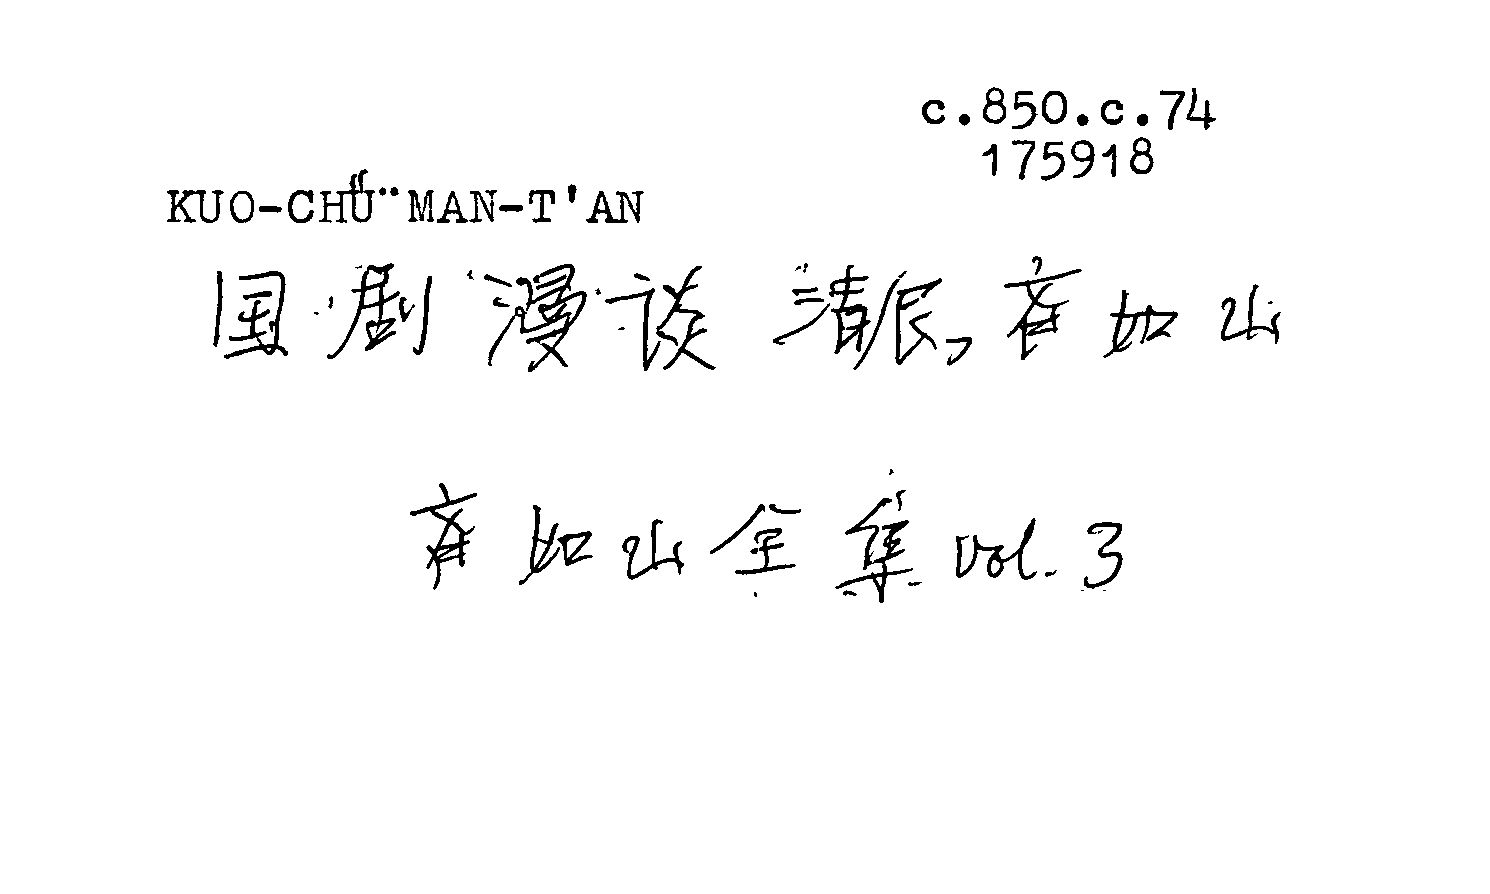 c.850.c.74
175918
KUO-CHÜ MAN-T'AN
国剧漫谈 清/民, 斉如山
斉如山全集 vol. 3